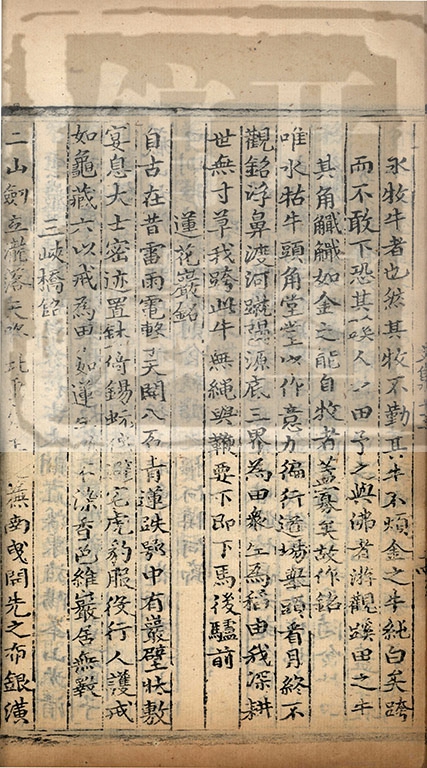 水牧牛者也然其牧不勤其牛不煩金之牛純白矣跨
而不敢下恐其啖人之田予之與佛者游觀蹊田之牛
其角觺觺如金之能自牧者蓋寡矣故作銘
唯水牯牛頭角堂堂以作意力徧行道場舉頭看月終不
觀銘浮鼻渡河蹴蹋源底三界為田眾生為稻由我深耕
世無寸草我跨此牛無繩與鞭要下即下馬後驢前
蓮花巖銘
自古在昔雷雨電擊天開八石青蓮跌鄂中有巖壁帙敷
宴息大士密迹置缽倚錫 虎豹服役行人護戒
如龜藏六以戒為田如蓮 滌香色維巖居無斁
三峽橋銘
二山劍立瀧落天 蕪西曳開先之布銀潢